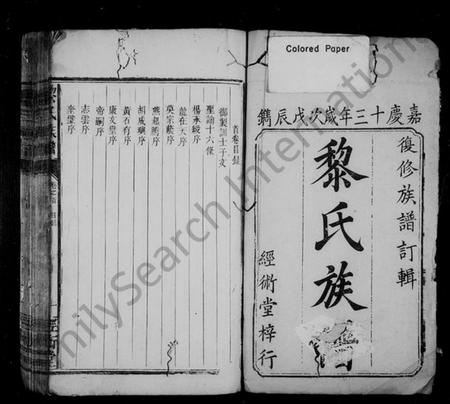 Colored Paper
嘉慶十三年歲次戊辰鐫
復修族譜訂輯
黎氏族
經術堂梓行
首卷目錄
御製訓士子文
聖諭十六條
楊承統序
龍在天序
吳宗蘇序
熊魁術序
胡咸熙序
黃石有序
康友皇序
帝嗣序
志雲序
奎黨序
FamilySearch International